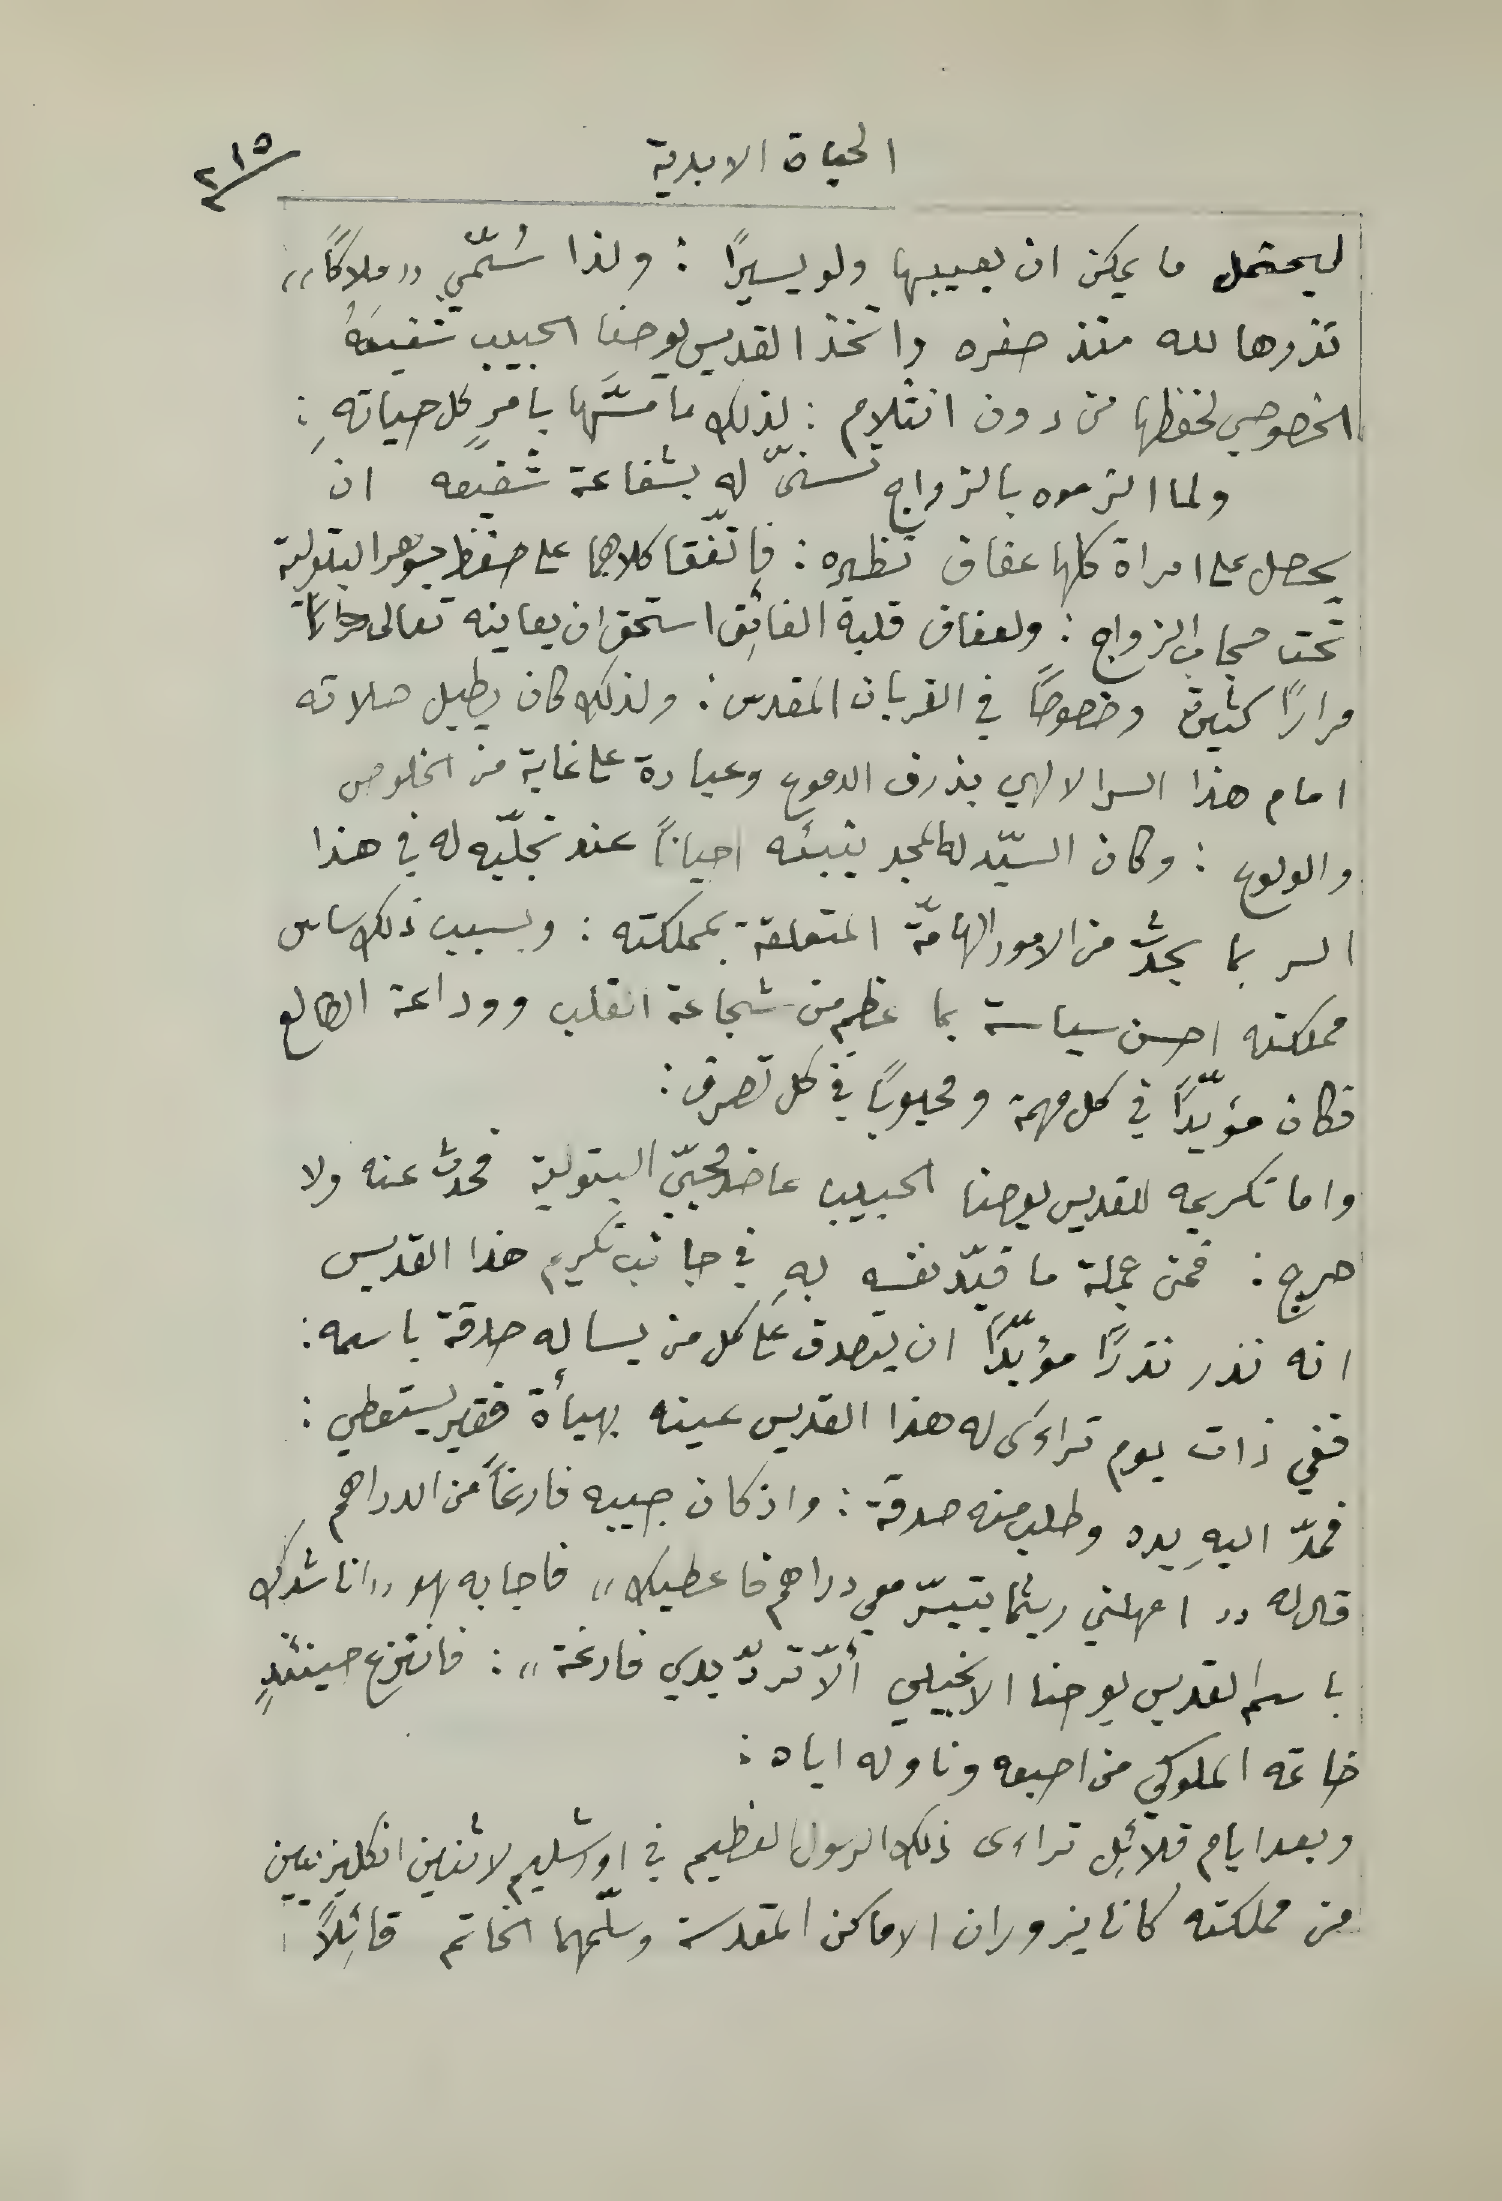 الحياة الابدية
٢١٥
ليحتمل ما يمكن ان يعيبها ولو يسيرًا : ولذا سُمّي «ملاكًا»
نذرها لله منذ صغره واتخذ القديس يوحنا الحبيب شفيعَهُ
الخصوصي لحفظها من دون انثلام : لذلك ما مسَّها بامرٍ كل حياتهِ :
ولما الزموه بالزواج تسنّى له بشفاعة شفيعه ان
يحصل على امراة كلها عفاف نظيره : فاتّفقا كلاهما على حفظ جوهر البتولية
تحت حجاب الزواج : ولعفاف قلبه الفائِق استحق ان يعاينه تعالى
مرارًا كثيرة وخصوصًا في القربان المقدس : ولذلك كان يطيل صلاته
امام هذا السر الالهي بذرف الدموع وعبادة على غاية من الخلوص
والولوع : وكان السيّد له المجد ينبئه احيانًا عند تجلّيه له في هذا
السر بما يحدث من الامور الهامّة المتعلقة بمملكته : وبسبب ذلك ساس
مملكته احسن سياسة بما عظم من شجاعة القلب ووداعة الطالع
فكان مؤيّدًا في كل مهمة ومحبوبًا في كل تصرف :
واما تكريمه للقديس يوحنا الحبيب عاضد محبّي البتولية فحدث عنه ولا
حرج : فمن جملة ما قيّد نفسه بهِ في جانب تكريم هذا القديس
انه نذر نذرًا مؤبّدًا ان يتصدق على كل من يساله صدقة باسمه :
ففي ذات يوم تراءى له هذا القديس عينه بهيأة فقير يستعطي :
فمدّ اليهِ يده وطلب منه صدقة : واذ كان جيبه فارغًا من الدراهم
قال له «امهلني ريثما يتيسّر معي دراهم فاعطيك» فاجابه هو «اناشدك
باسم القديس يوحنا الانجيلي ألاّ تردّ يدي فارغة» : فانتزع حينئذٍ
خاتمه الملوكي من اصبعه وناوله اياه :
وبعد ايام قلائِل تراءى ذلك الرسول العظيم في اورشليم لاثنين انكليزيين
من مملكته كانا يزوران الاماكن المقدسة وسلّمهما الخاتم قائِلاً :